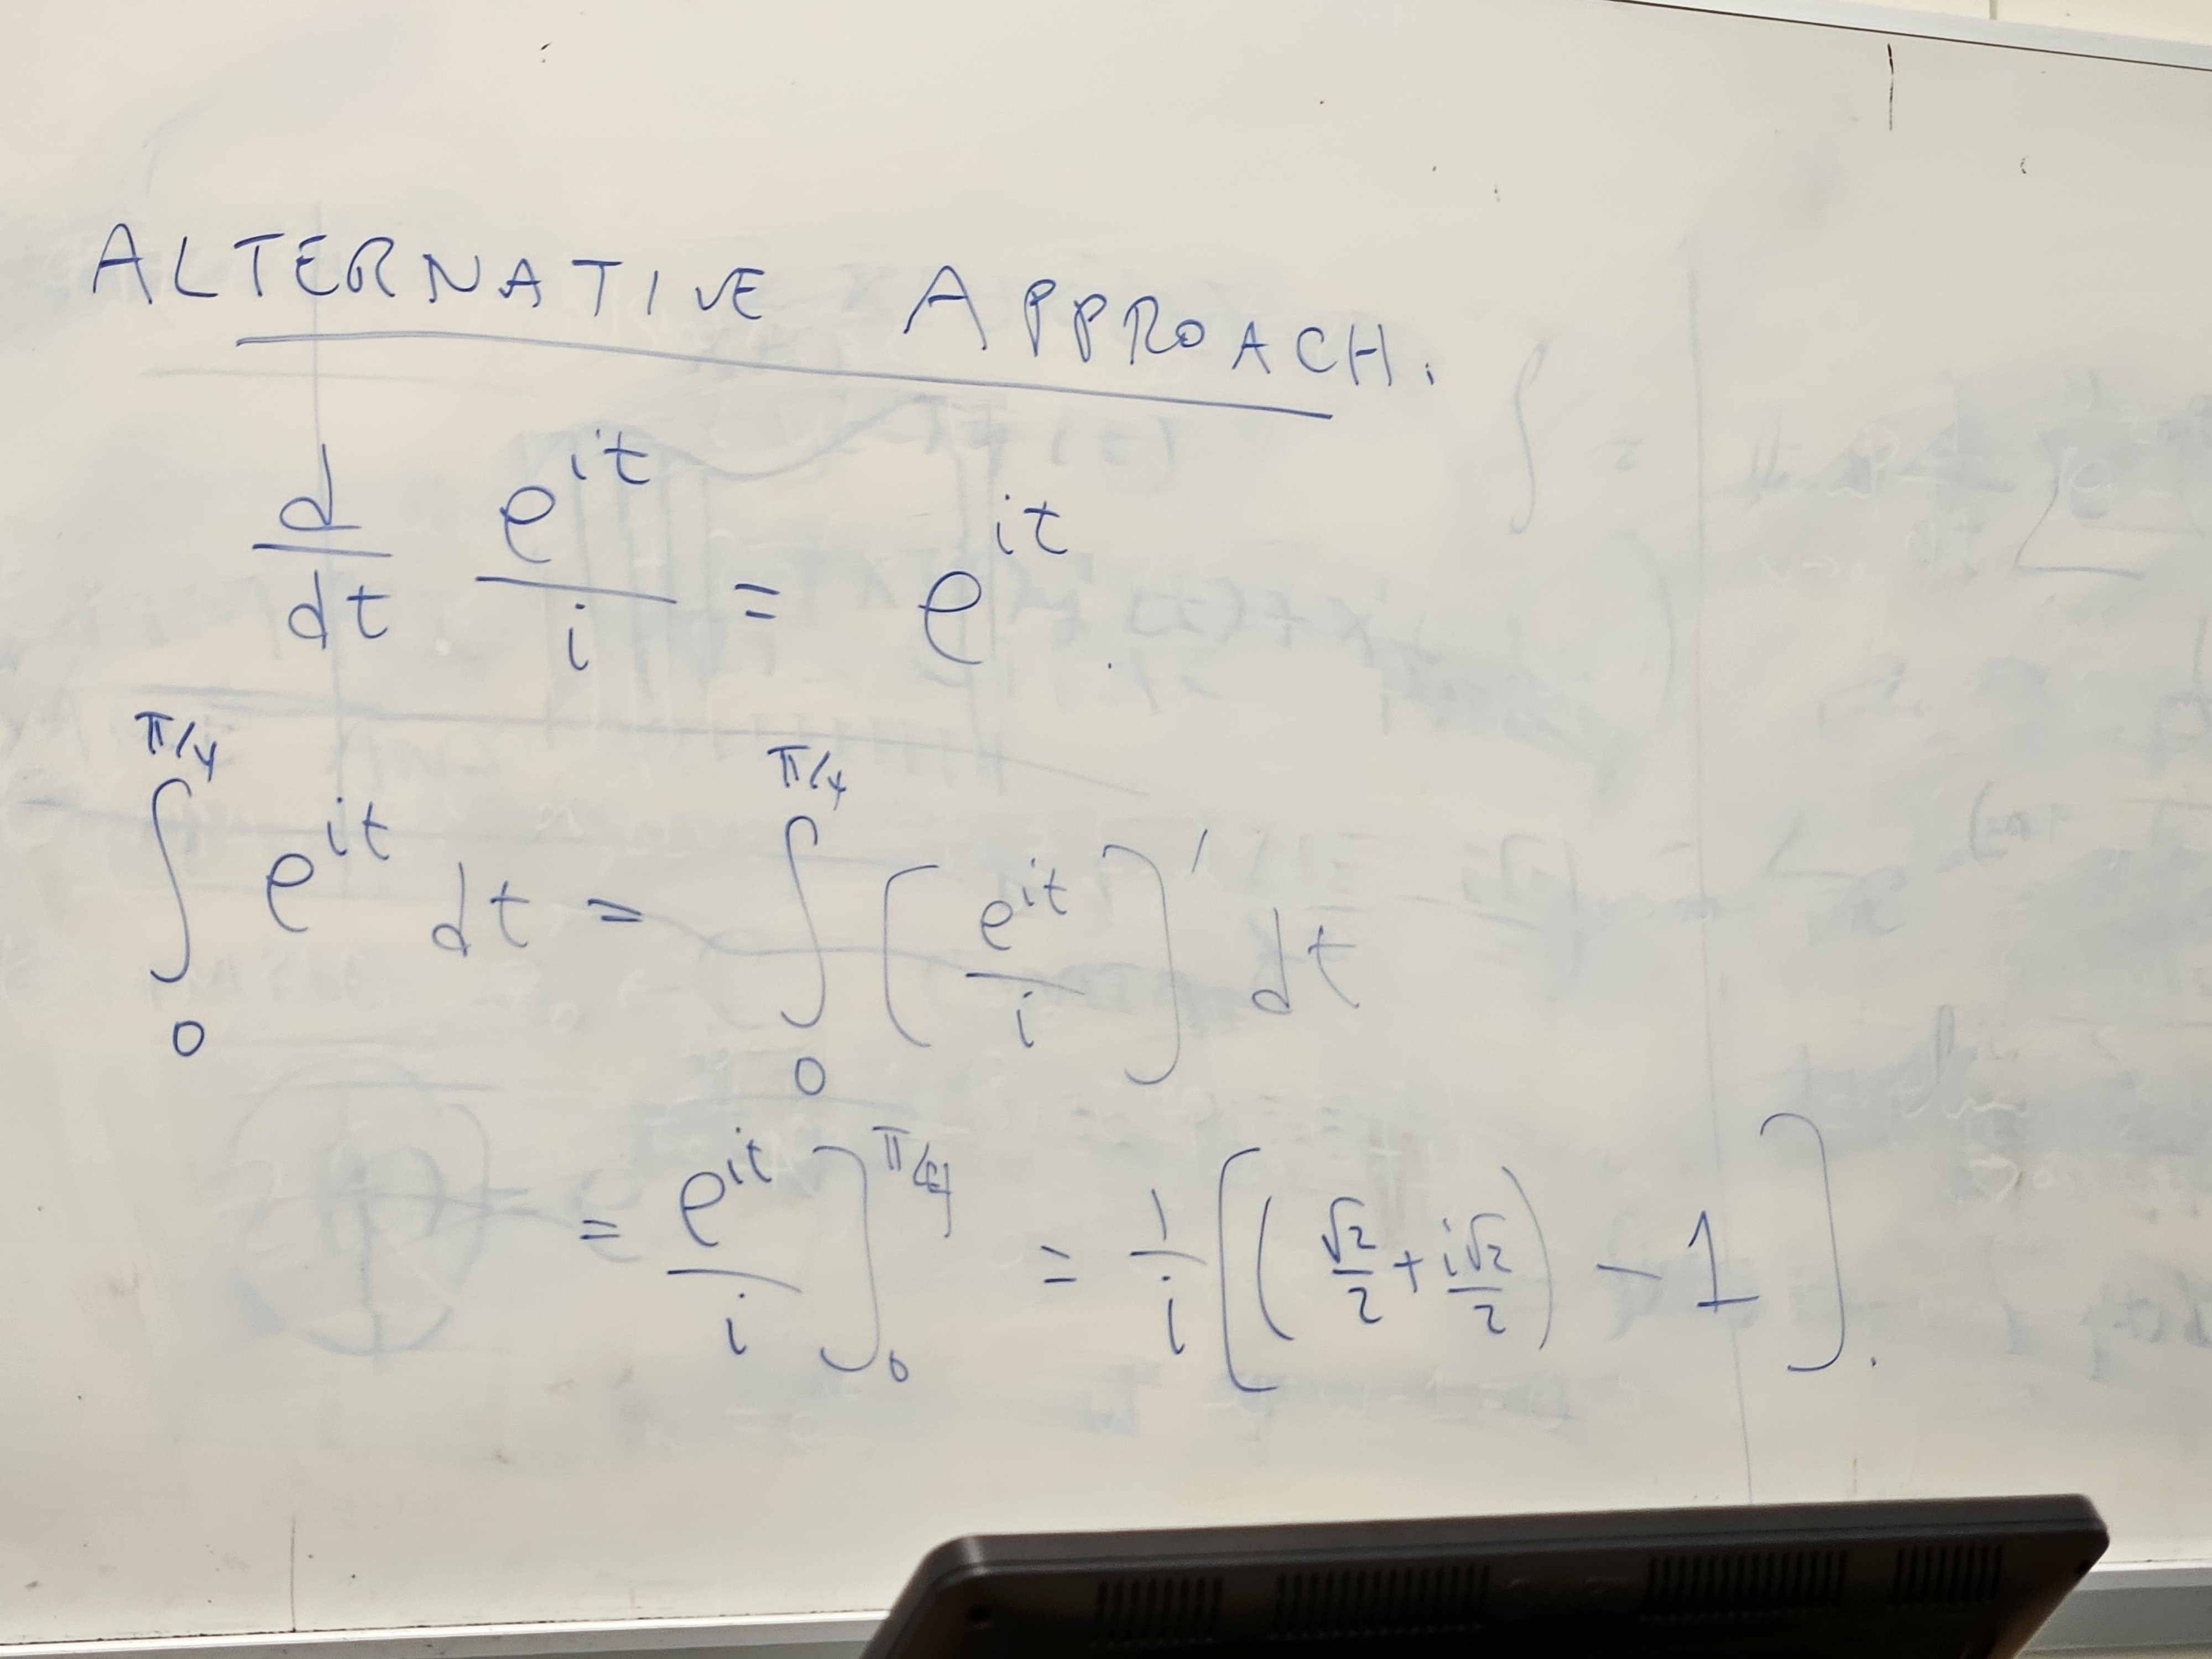 ALTERNATIVE APPROACH.
d/dt e^{it}/i = e^{it}
∫_0^{π/4} e^{it} dt = ∫_0^{π/4} (e^{it}/i)' dt
= e^{it}/i ]_0^{π/4} = 1/i [(√2/2 + i√2/2) - 1].